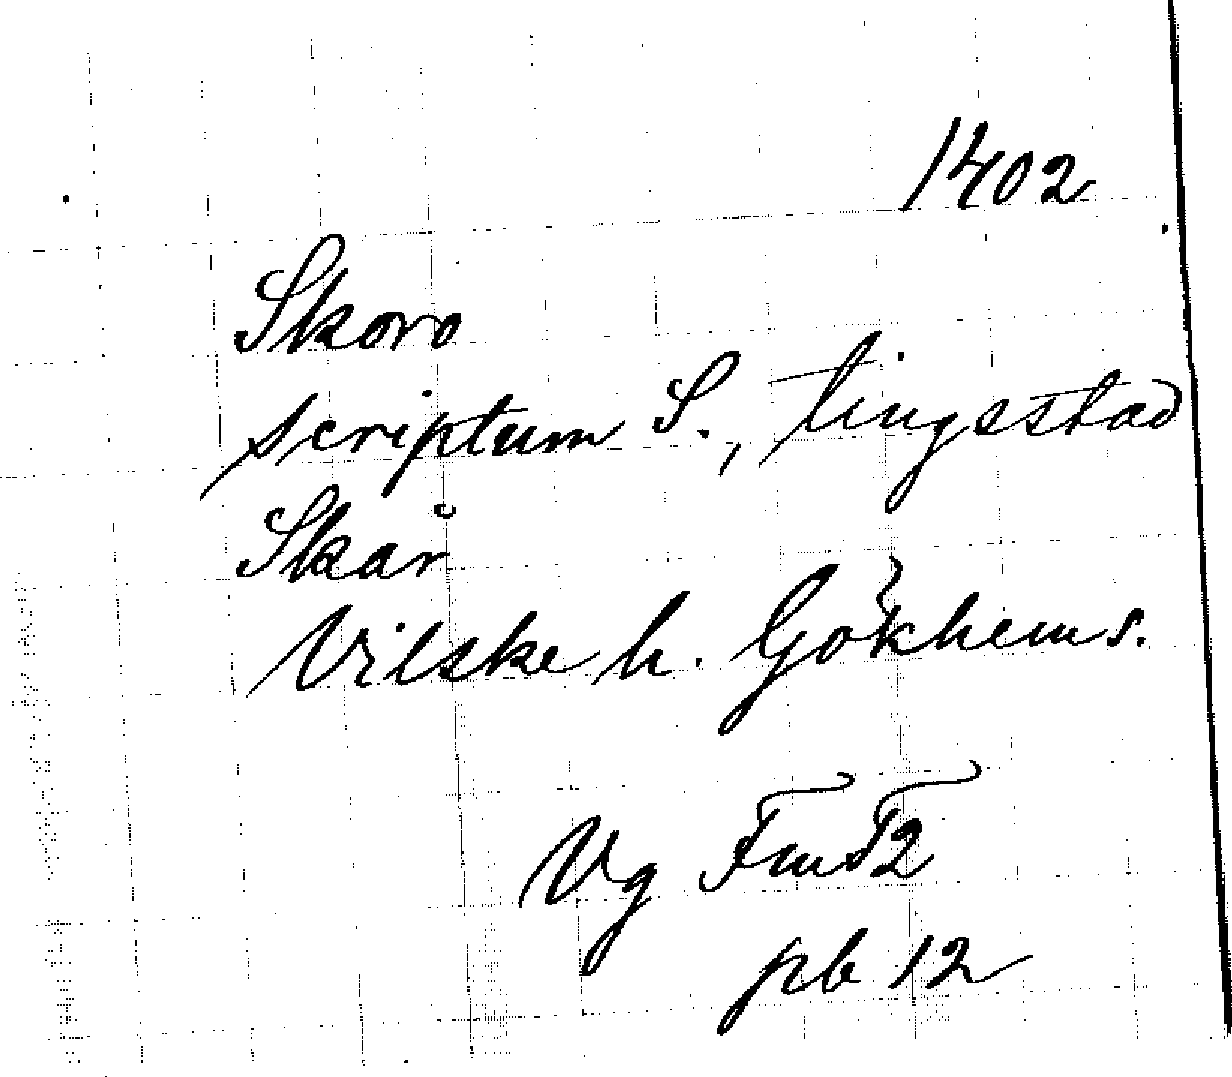 1402
Skoro
scriptum S., tingsstad
Skår
Vilske h. Gökhems s.
Vg FmT2
pb 12